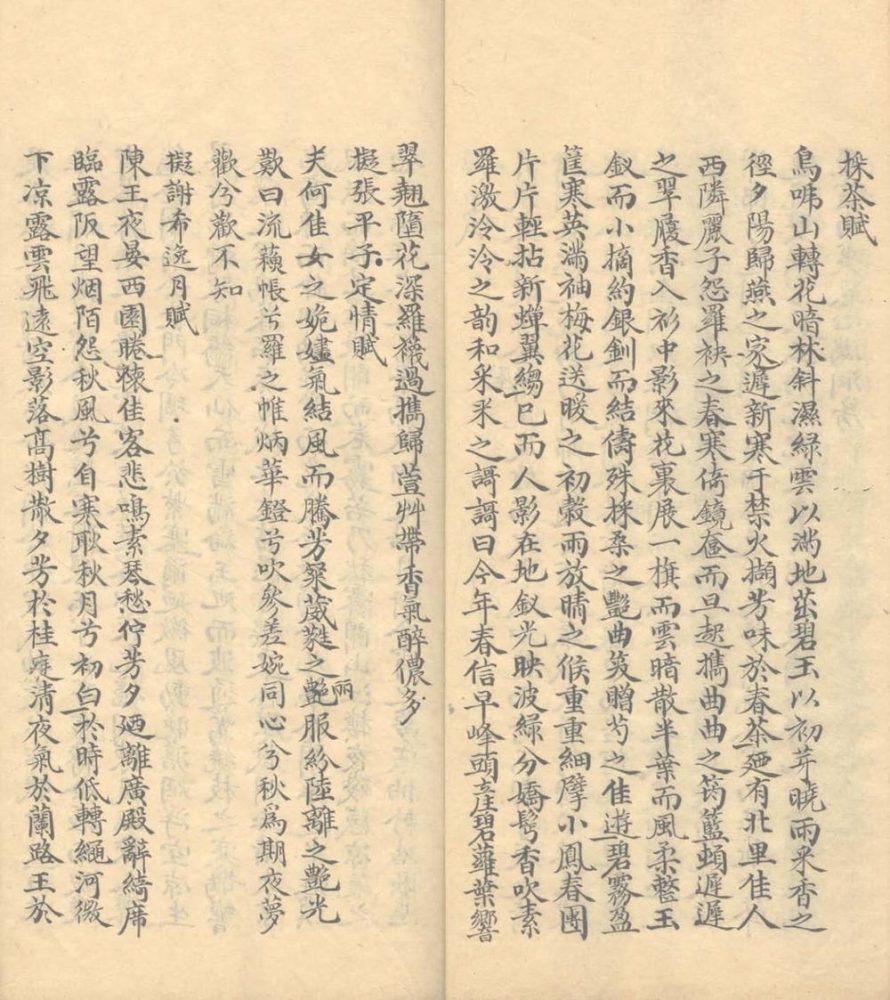 採茶賦
鳥啼山轉花暗林斜濕綠雲以滿地茁碧玉以初芽曉雨采香之
徑夕陽歸燕之家遲新寒于禁火擷芳味於春茶廼有北里佳人
西隣麗子怨羅袂之春寒倚鏡奩而旦起攜曲曲之筠籃蜵遲遲
之翠屐香入衫中影來花裏展一旗而雲暗散半葉而風柔整玉
釵而小摘約銀釧而結儔殊採桑之艷曲笑贈芍之佳遊碧霧盈
筐寒英滿袖梅花送暖之初穀雨放晴之候重重細擘小鳳春團
片片輕拈新蟬翼縐已而人影在地釵光映波綠分嬌髩香吹素
羅激泠泠之韵和采采之謌謌曰今年春信早峰頭産碧蘿葉響
翠翹墮花深羅襪過擕歸萱艸帶香氣醉儂多
擬張平子定情賦
夫何佳女之娩嫿氣結風而騰芳粲葳蕤之艷服紛陸離之艷光
麗
歎曰流蘋帳兮羅之帷炳華鐙兮吹參差婉同心兮秋爲期夜夢
歡兮歡不知
擬謝希逸月賦
陳王夜晏西園睠懷佳客悲鳴素琴愁佇芳夕廼離廣殿辭綺席
臨露阪望烟陌怨秋風兮自寒耿秋月兮初白於時低轉繩河微
下凉露雲飛遠空影落高樹散夕芳於桂庭清夜氣於蘭路王於